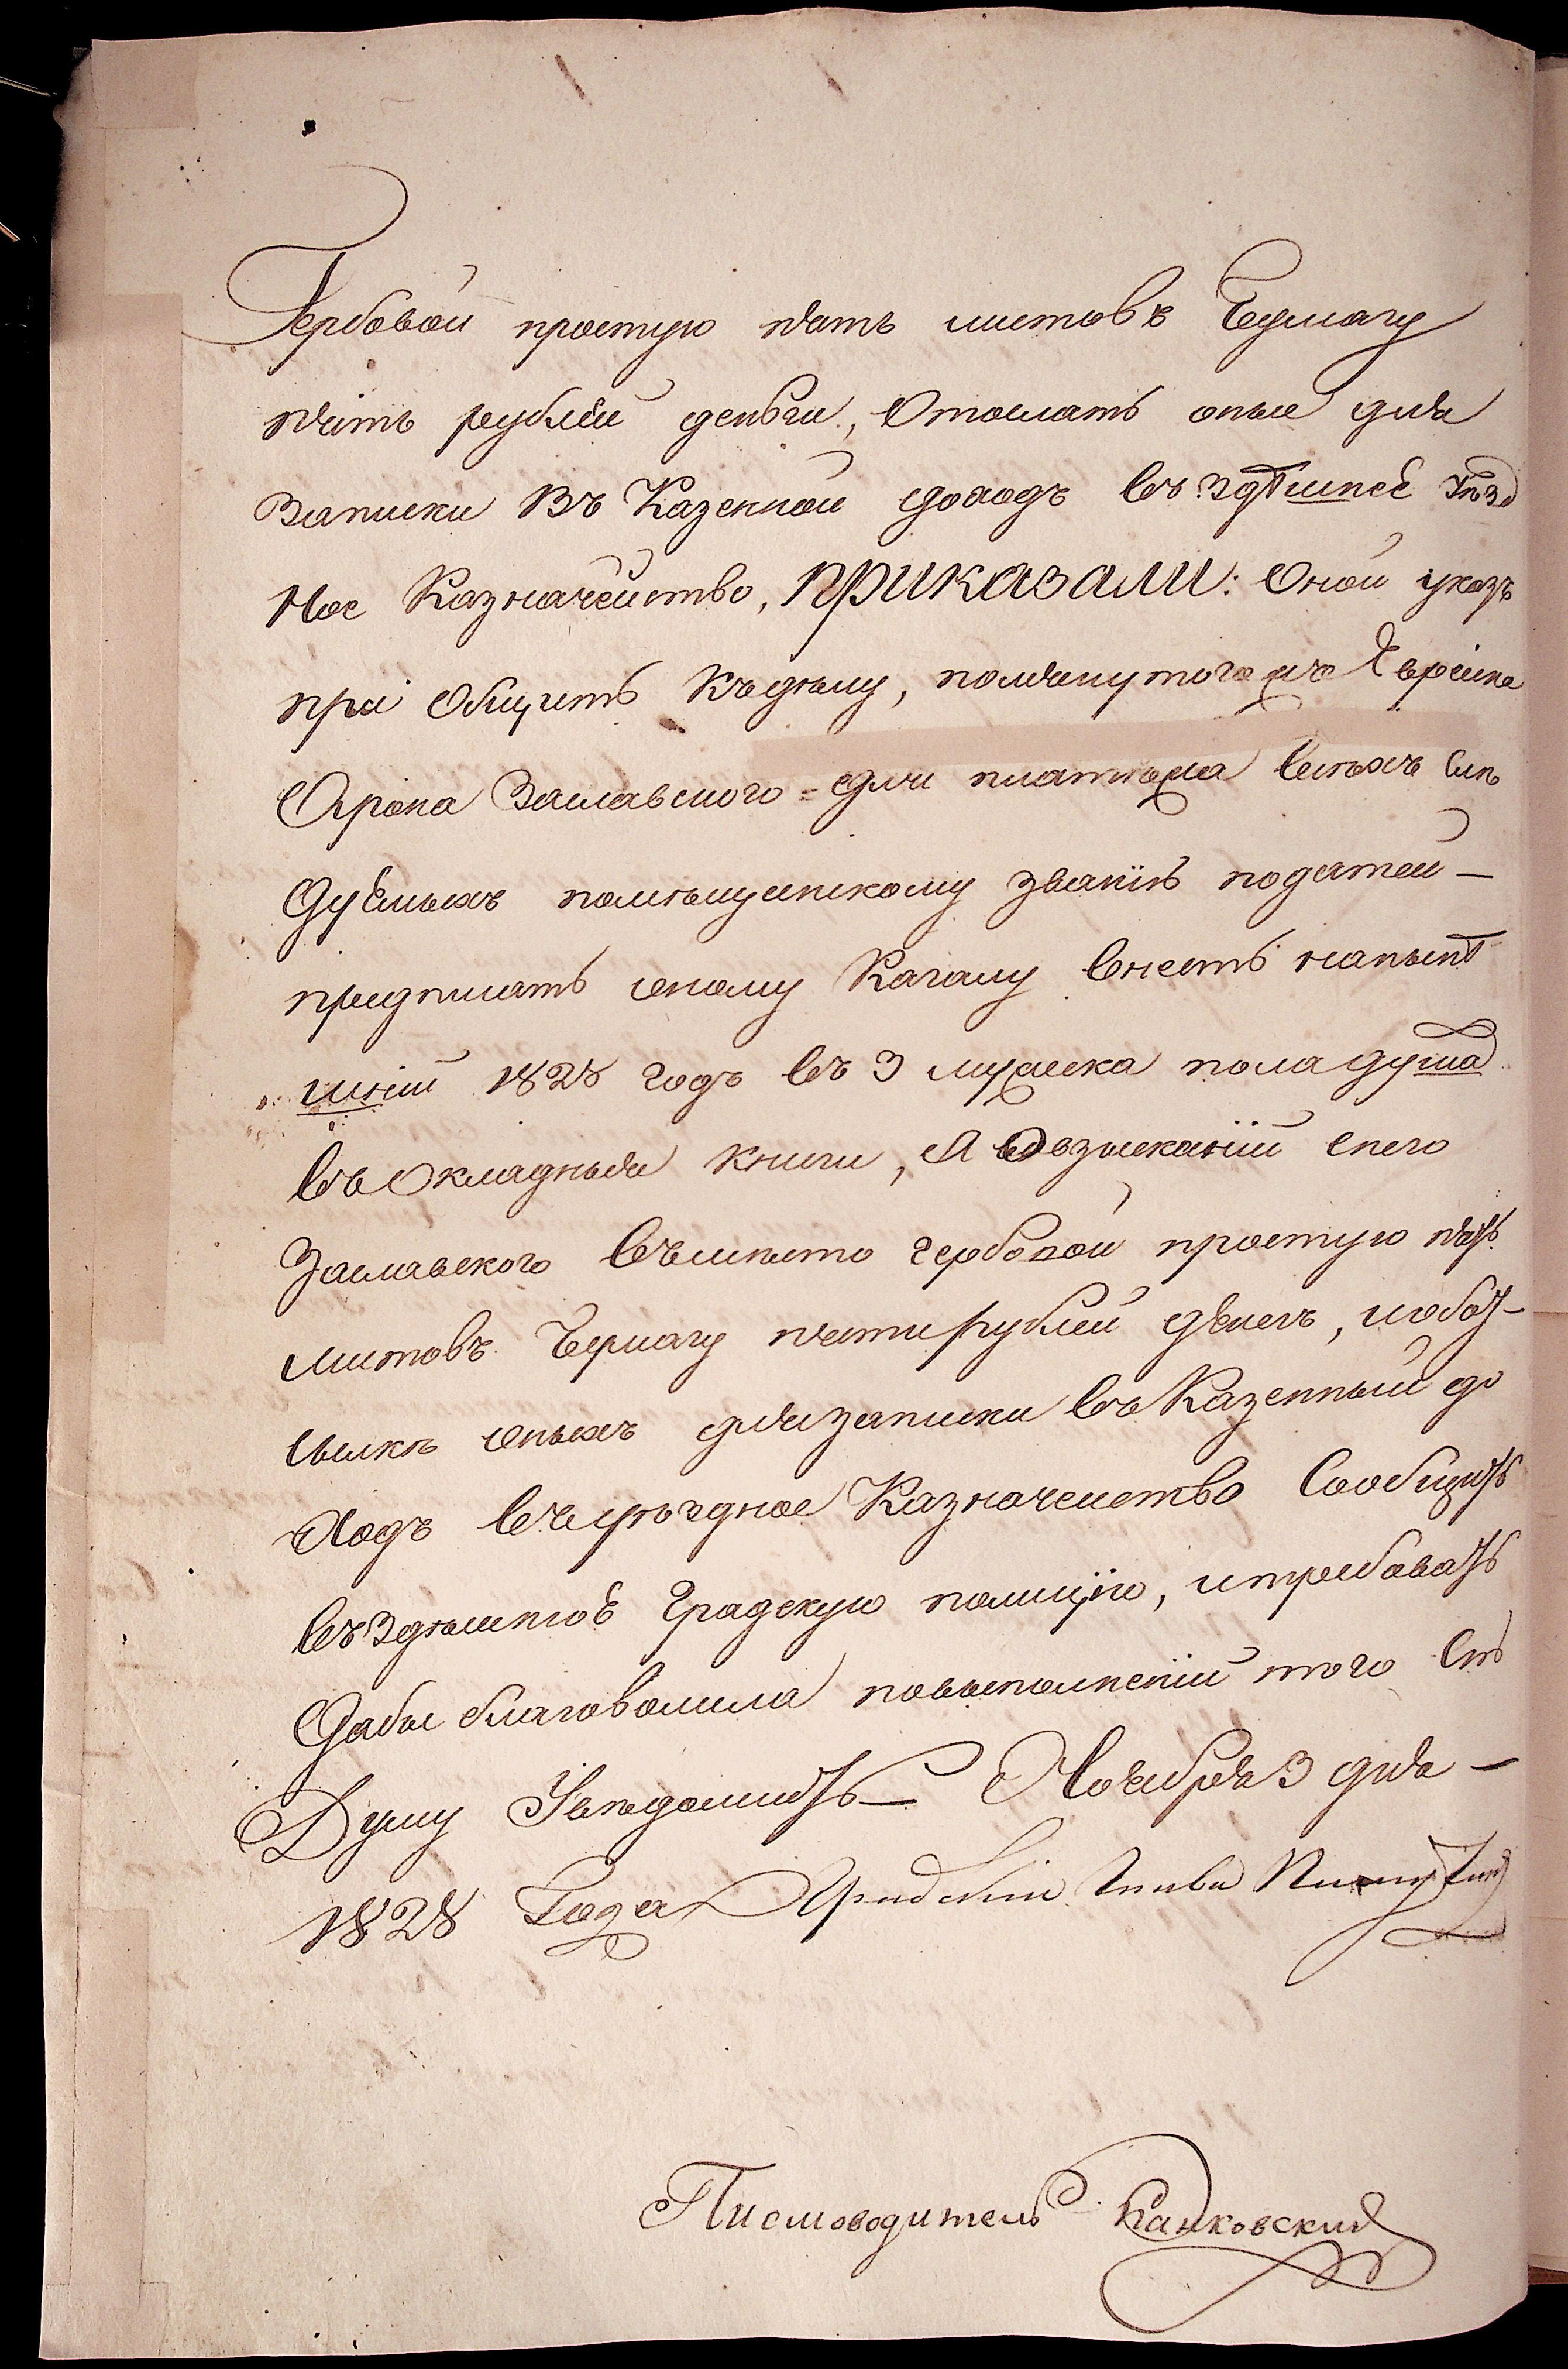 Гербовой простую пять листовъ бумагу
пять рублей деньги, Отослать оные для
Записки Въ Казенной доходъ въ здѣшнеѣ Уѣзд
ное Казначейство, ПРИКАЗАЛИ: Оной указъ
при общить Къдѣлу, помянутого же Еврейна
Арона Заславского = для платежа всѣхъ слѣ
дуемыхъ помѣщинскому званію податей —
предписать оному Кагалу внесть нанынѣ
шній 1828 годъ въ 3 мужеска пола душа
въ Окладныя книги, А овзысканіи снего
Заславского вместо гербовой простую пять
листовъ бумагу пятирублей денегъ, иобот-
сылкѣ оныхъ длязаписки въ Казенный до
ходъ въуѣздное Казначейство Сообщить
въздѣшнюю Градскую полицію, итребовать
Дабы благоволила повыполненіи того Сію
Думу Увѣдомить — Ноября 3 дня —
1828 Года Градскій Глава
Писмоводитель Банковский